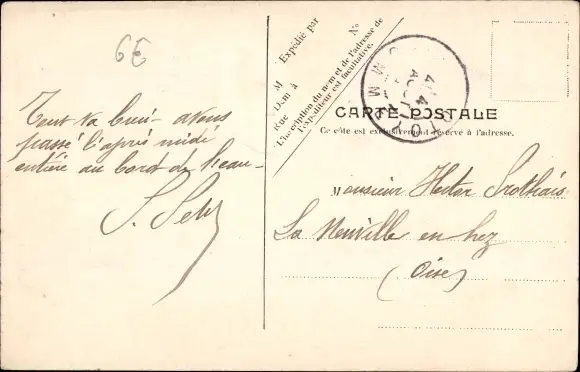 6E
Tout va bien - avons
passé l'après midi
entière au bord de l'eau -
M Expédié par
Nº
Dem à
Rue
L'inscription du nom et de l'adresse de
l'expéditeur est facultative.
CARTE POSTALE
Ce côté est exclusivement réservé à l'adresse.
Monsieur Hector
La Neuville en hez
(Oise)